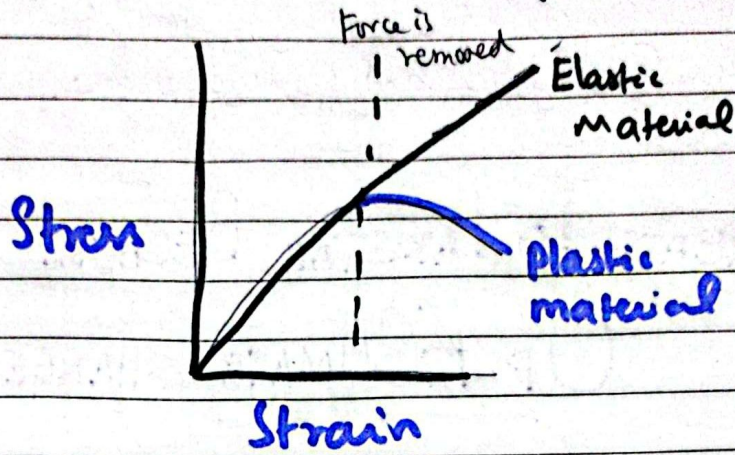 Force is
removed
Elastic
Material
Stress
Plastic
material
Strain